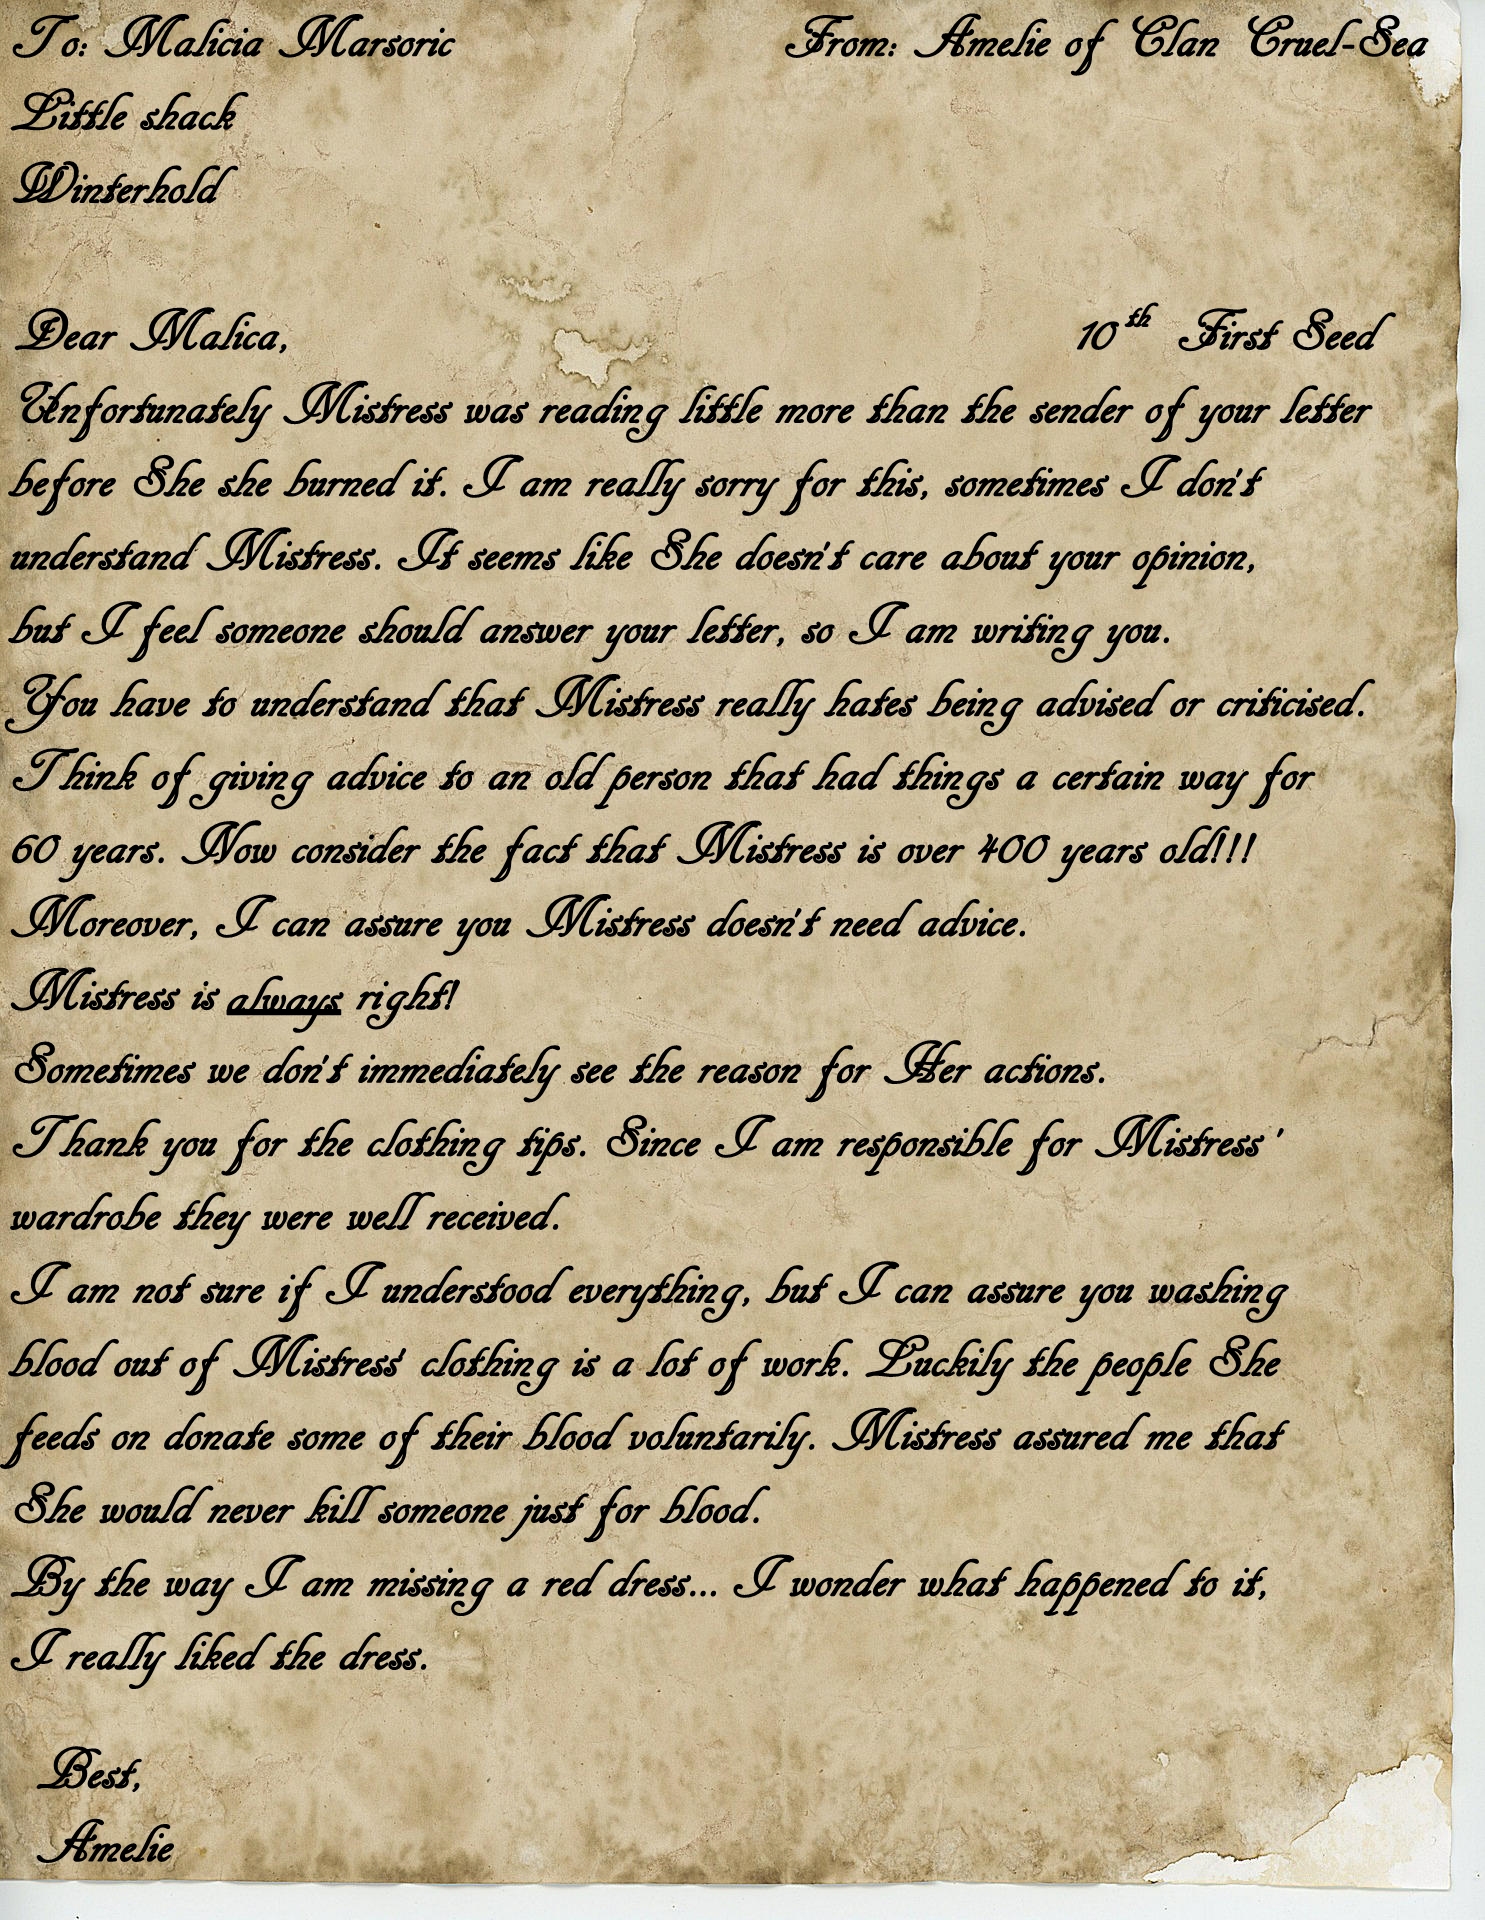 To: Malicia Marsoric From: Amelie of Clan Cruel-Sea
Little shack
Winterhold
Dear Malica, 10th First Seed
Unfortunately Mistress was reading little more than the sender of your letter
before She she burned it. I am really sorry for this, sometimes I don't
understand Mistress. It seems like She doesn't care about your opinion,
but I feel someone should answer your letter, so I am writing you.
You have to understand that Mistress really hates being advised or criticised.
Think of giving advice to an old person that had things a certain way for
60 years. Now consider the fact that Mistress is over 400 years old!!!
Moreover, I can assure you Mistress doesn't need advice.
Mistress is always right!
Sometimes we don't immediately see the reason for Her actions.
Thank you for the clothing tips. Since I am responsible for Mistress'
wardrobe they were well received.
I am not sure if I understood everything, but I can assure you washing
blood out of Mistress' clothing is a lot of work. Luckily the people She
feeds on donate some of their blood voluntarily. Mistress assured me that
She would never kill someone just for blood.
By the way I am missing a red dress... I wonder what happened to it,
I really liked the dress.
Best,
Amelie